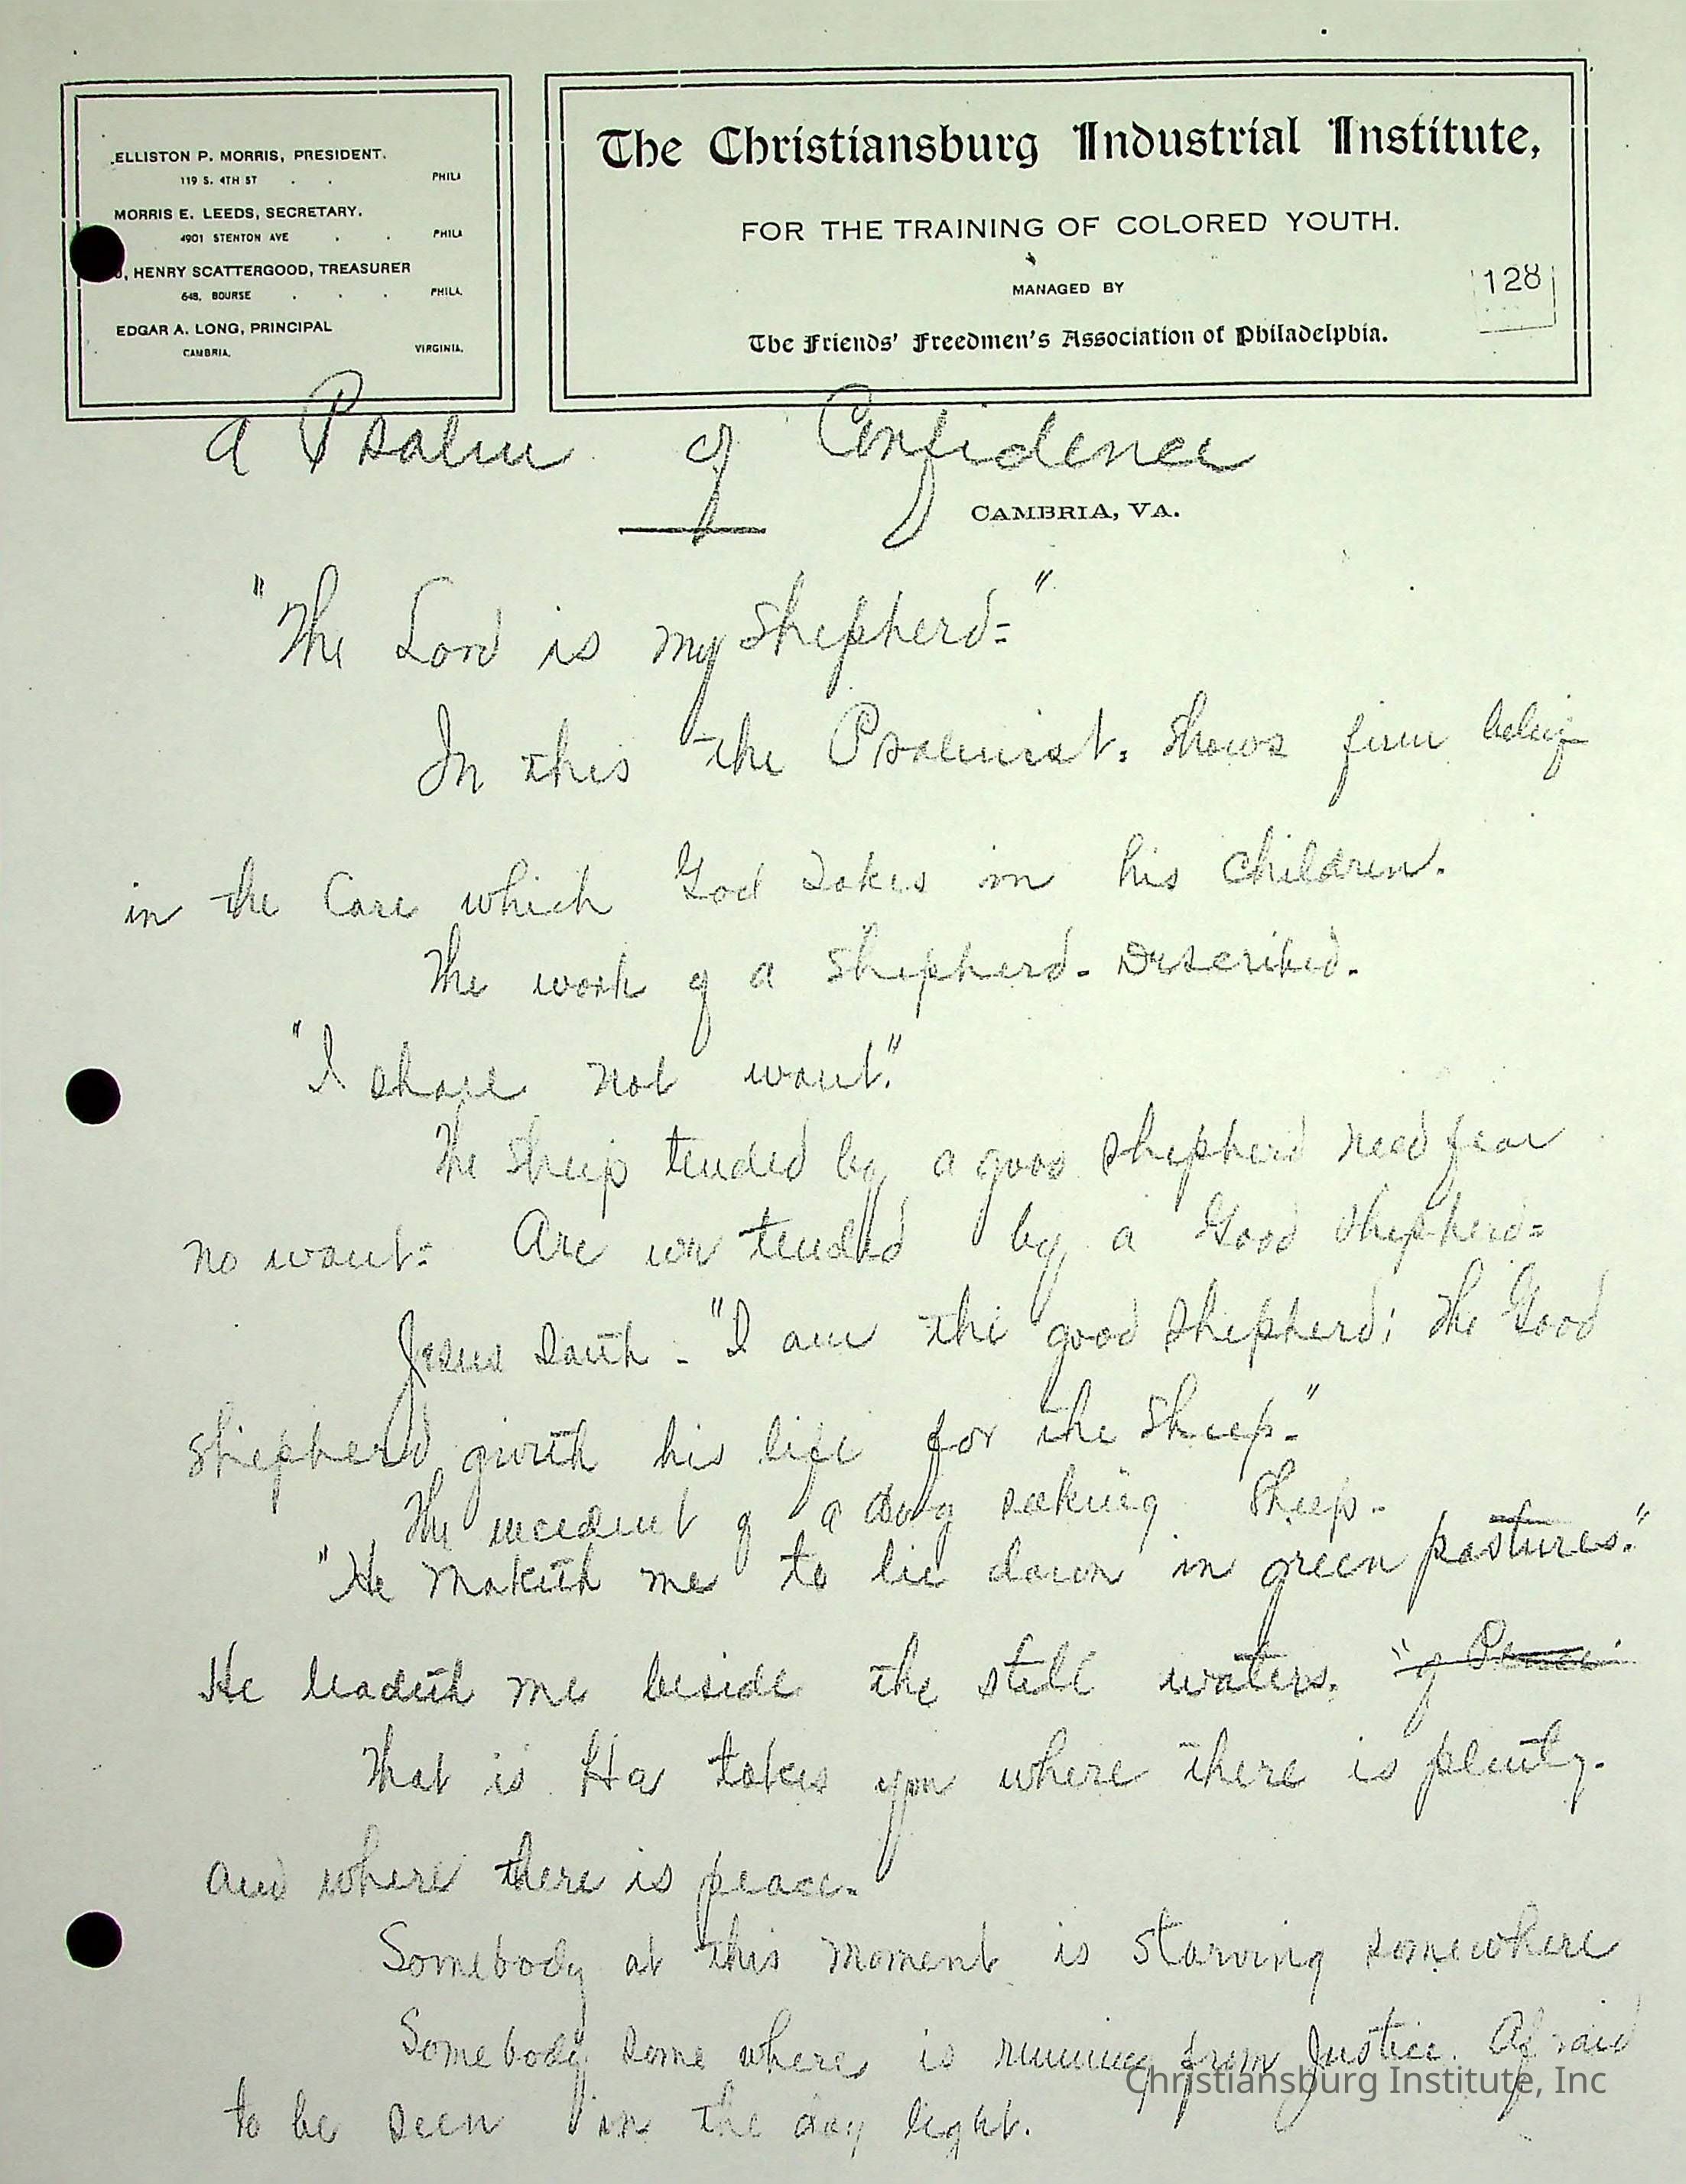 ELLISTON P. MORRIS, PRESIDENT.
119 S. 4TH ST . . PHILA
MORRIS E. LEEDS, SECRETARY.
4901 STENTON AVE . . PHILA
J. HENRY SCATTERGOOD, TREASURER
648, BOURSE . . . PHILA.
EDGAR A. LONG, PRINCIPAL
CAMBRIA, VIRGINIA.
The Christiansburg Industrial Institute,
FOR THE TRAINING OF COLORED YOUTH.
MANAGED BY
128
The Friends' Freedmen's Association of Philadelphia.
A Psalm of Confidence
CAMBRIA, VA.
"The Lord is my Shepherd="
In this the Psalmist. Shows firm belief
in the Care which God takes in his Children.
The work of a Shepherd. Described.
"I shall not want."
The Sheep tended by a good Shepherd need fear
no want= Are we tended by a Good Shepherd=
Jesus Saith - "I am the good Shepherd; The Good
Shepherd giveth his life for the Sheep."
The incident of a dog seeking Sheep.
"He maketh me to lie down in green pastures."
He leadeth me beside the still waters. "of Peace"
That is He takes you where there is plenty.
And where there is peace.
Somebody at this moment is starving somewhere
Somebody some where is running from Justice. Afraid
to be seen in the day light.
Christiansburg Institute, Inc